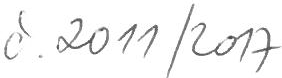 č. 2011/2017